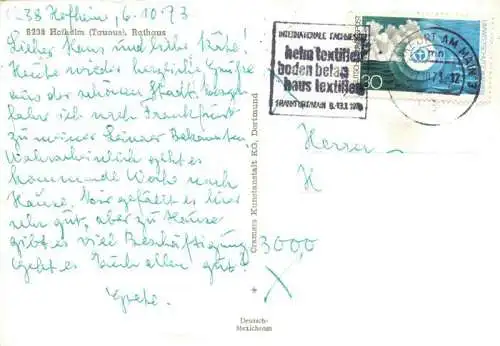 6238 Hofheim, 6.10.73
6238 Hofheim (Taunus), Rathaus
Lieber Hans und liebe Käthe!
Heute wieder herzliche Grüße
aus der schönen Stadt.
fahr ich nach Frankfurt
zu meiner Bekannten.
Wahrscheinlich geht es
kommende Woche nach
Hause. Mir gefällt es hier
sehr gut, aber zu Hause
gibt es viel Beschäftigung
Geht es Euch allen gut?
Grete.
Cramers Kunstanstalt KG, Dortmund
Deutsch-
INTERNATIONALE FACHMESSE
heimtextilien
bodenbelag
haustextilien
FRANKFURT/MAIN
30
DEUTSCHE BUNDESPOST
FRANKFURT AM MAIN 2
Herrn
H
3000